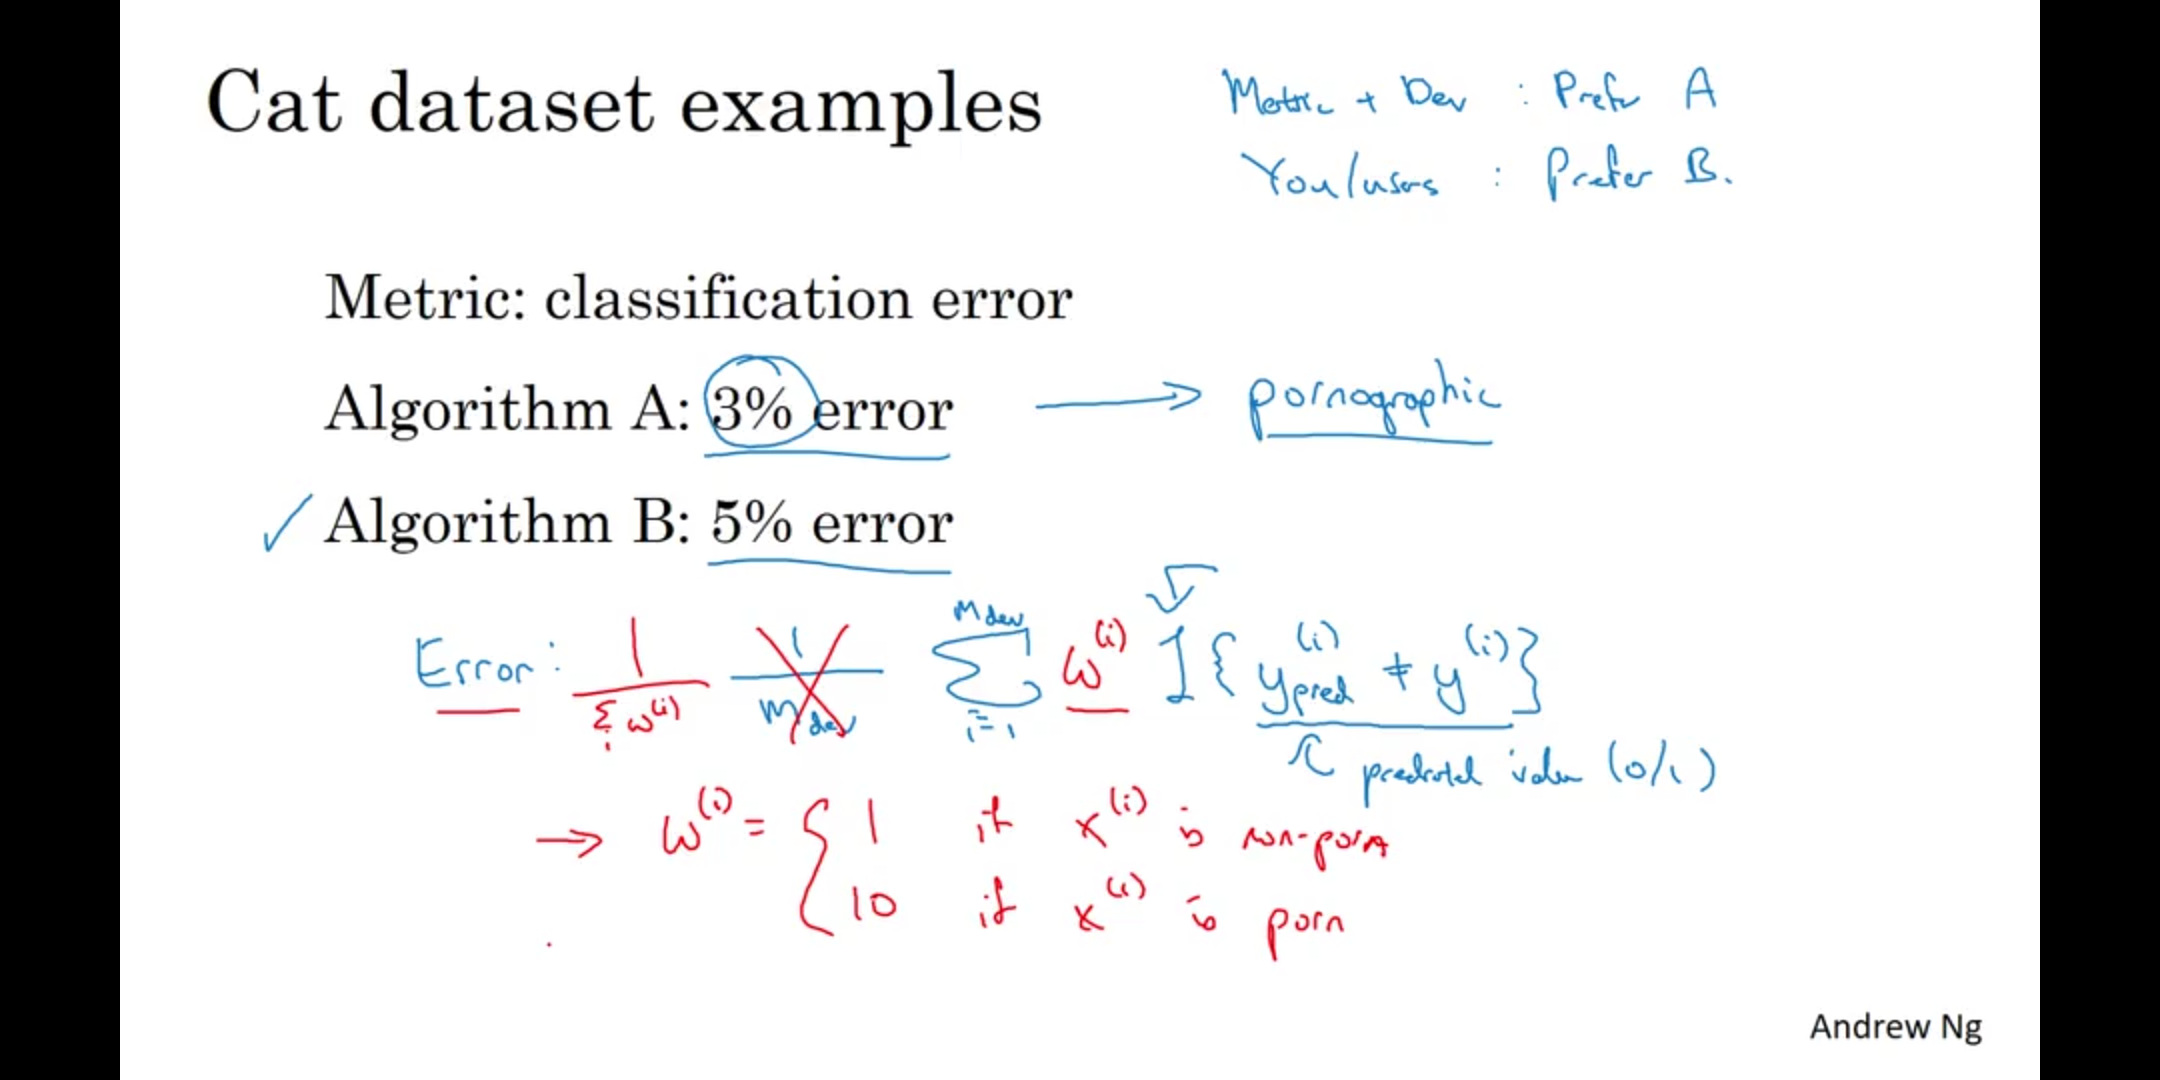 Cat dataset examples
Metric + Dev : Prefer A
You/users : Prefer B.
Metric: classification error
Algorithm A: 3% error → pornographic
✓ Algorithm B: 5% error
Error: 1/Σᵢ w⁽ⁱ⁾ 1/m_dev Σᵢ₌₁^m_dev w⁽ⁱ⁾ 1{y_pred⁽ⁱ⁾ ≠ y⁽ⁱ⁾}
predicted value (0/1)
→ w⁽ⁱ⁾ = { 1 if x⁽ⁱ⁾ is non-porn
10 if x⁽ⁱ⁾ is porn
Andrew Ng